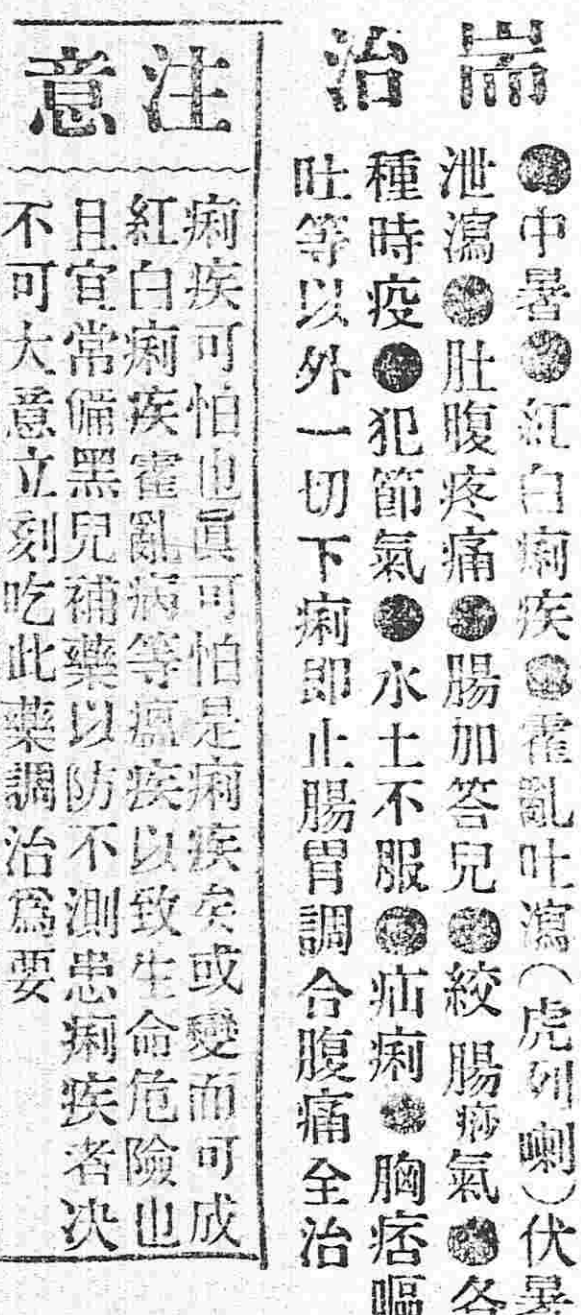 耑治
●中暑●紅白痢疾●霍亂吐瀉(虎列喇)伏暑
泄瀉●肚腹疼痛●腸加答兒●絞腸痧氣●各
種時疫●犯節氣●水土不服●疝痢●胸痞嘔
吐等以外一切下痢即止腸胃調合腹痛全治
注意
痢疾可怕也眞可怕是痢疾矣或變而可成
紅白痢疾霍亂病等瘟疾以致生命危險也
且宜常備黑兒補藥以防不測患痢疾者决
不可大意立刻吃此藥調治爲要